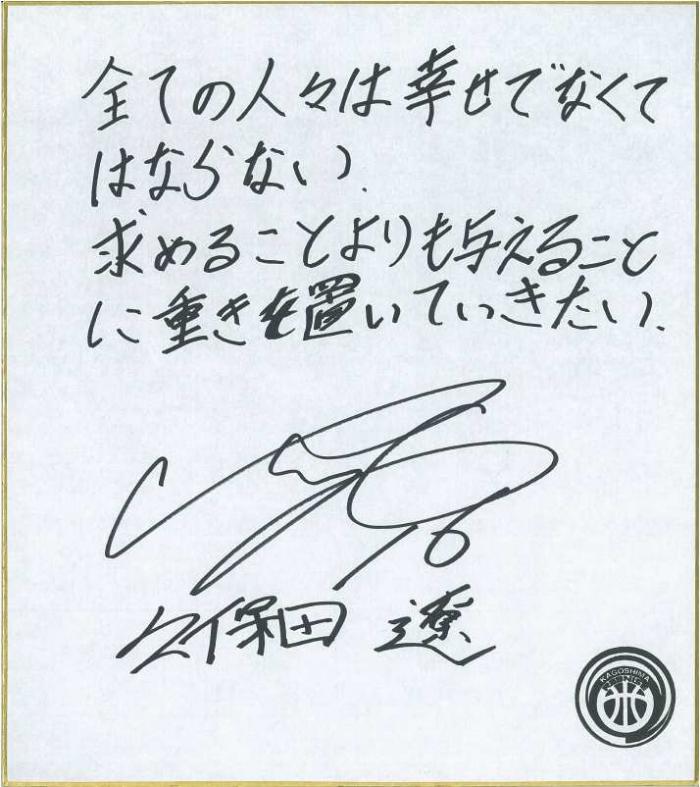 全ての人々は幸せでなくて
はならない.
求めることよりも与えること
に重きを置いていきたい.
久保田 遼
KAGOSHIMA